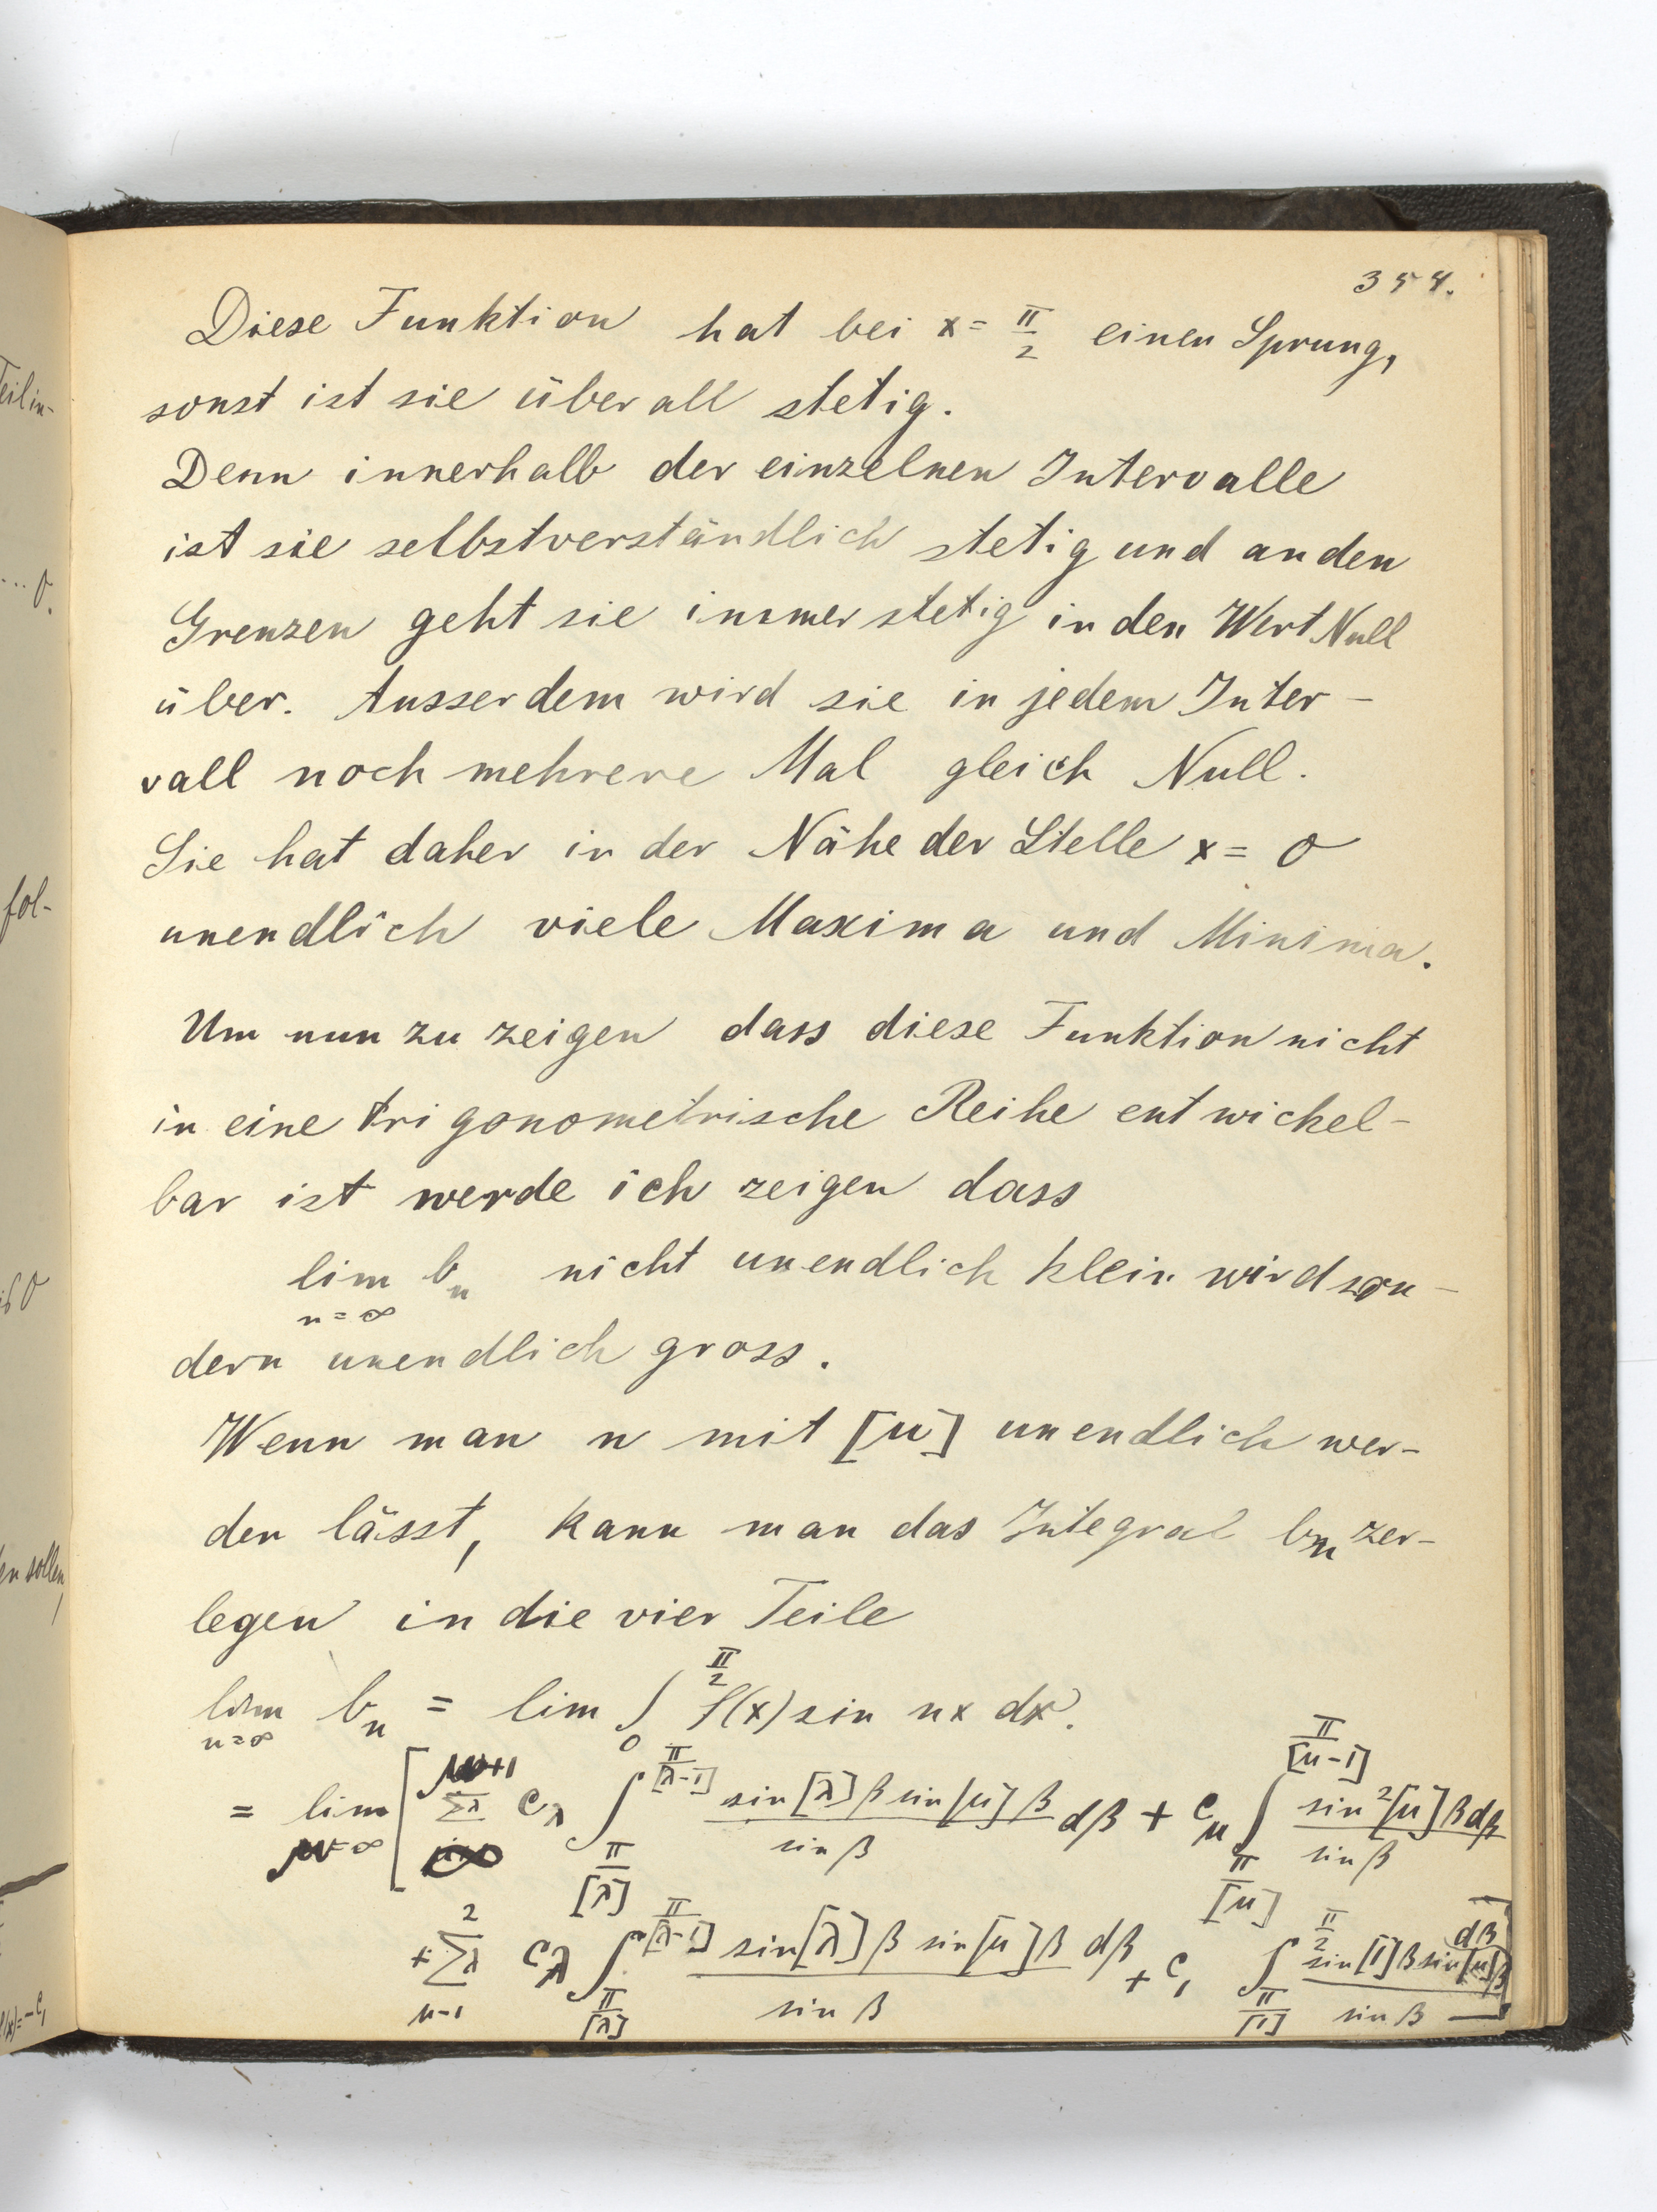 354.
Diese Funktion hat bei x = π/2 einen Sprung,
sonst ist sie überall stetig.
Denn innerhalb der einzelnen Intervalle
ist sie selbstverständlich stetig und an den
Grenzen geht sie immer stetig in den Wert Null
über. Ausserdem wird sie in jedem Inter-
vall noch mehrere Mal gleich Null.
Sie hat daher in der Nähe der Stelle x = 0
unendlich viele Maxima und Minima.
Um nun zu zeigen dass diese Funktion nicht
in eine trigonometrische Reihe entwickel-
bar ist werde ich zeigen dass
lim b_n nicht unendlich klein wird son-
n=∞
dern unendlich gross.
Wenn man n mit [μ] unendlich wer-
den lässt, kann man das Integral b_n zer-
legen in die vier Teile
lim_{n=∞} b_n = lim ∫_0^{π/2} f(x) sin nx dx.
= lim_{μ=∞} [ Σλ^{μ+1} c_λ ∫_{π/[λ]}^{π/[λ-1]} sin[λ]β sin[μ]β / sin β dβ + c_μ ∫_{π/[μ]}^{π/[μ-1]} sin²[μ]β dβ / sin β
+ Σλ_{μ-1}^{2} c_λ ∫_{π/[λ]}^{π/[λ-1]} sin[λ]β sin[μ]β / sin β dβ + c_1 ∫_{π/[1]}^{π/2} sin[1]β sin[μ]β / sin β dβ ]
eil in-
... 0.
fol-
is 0
en sollen,
f(x)=-c_1